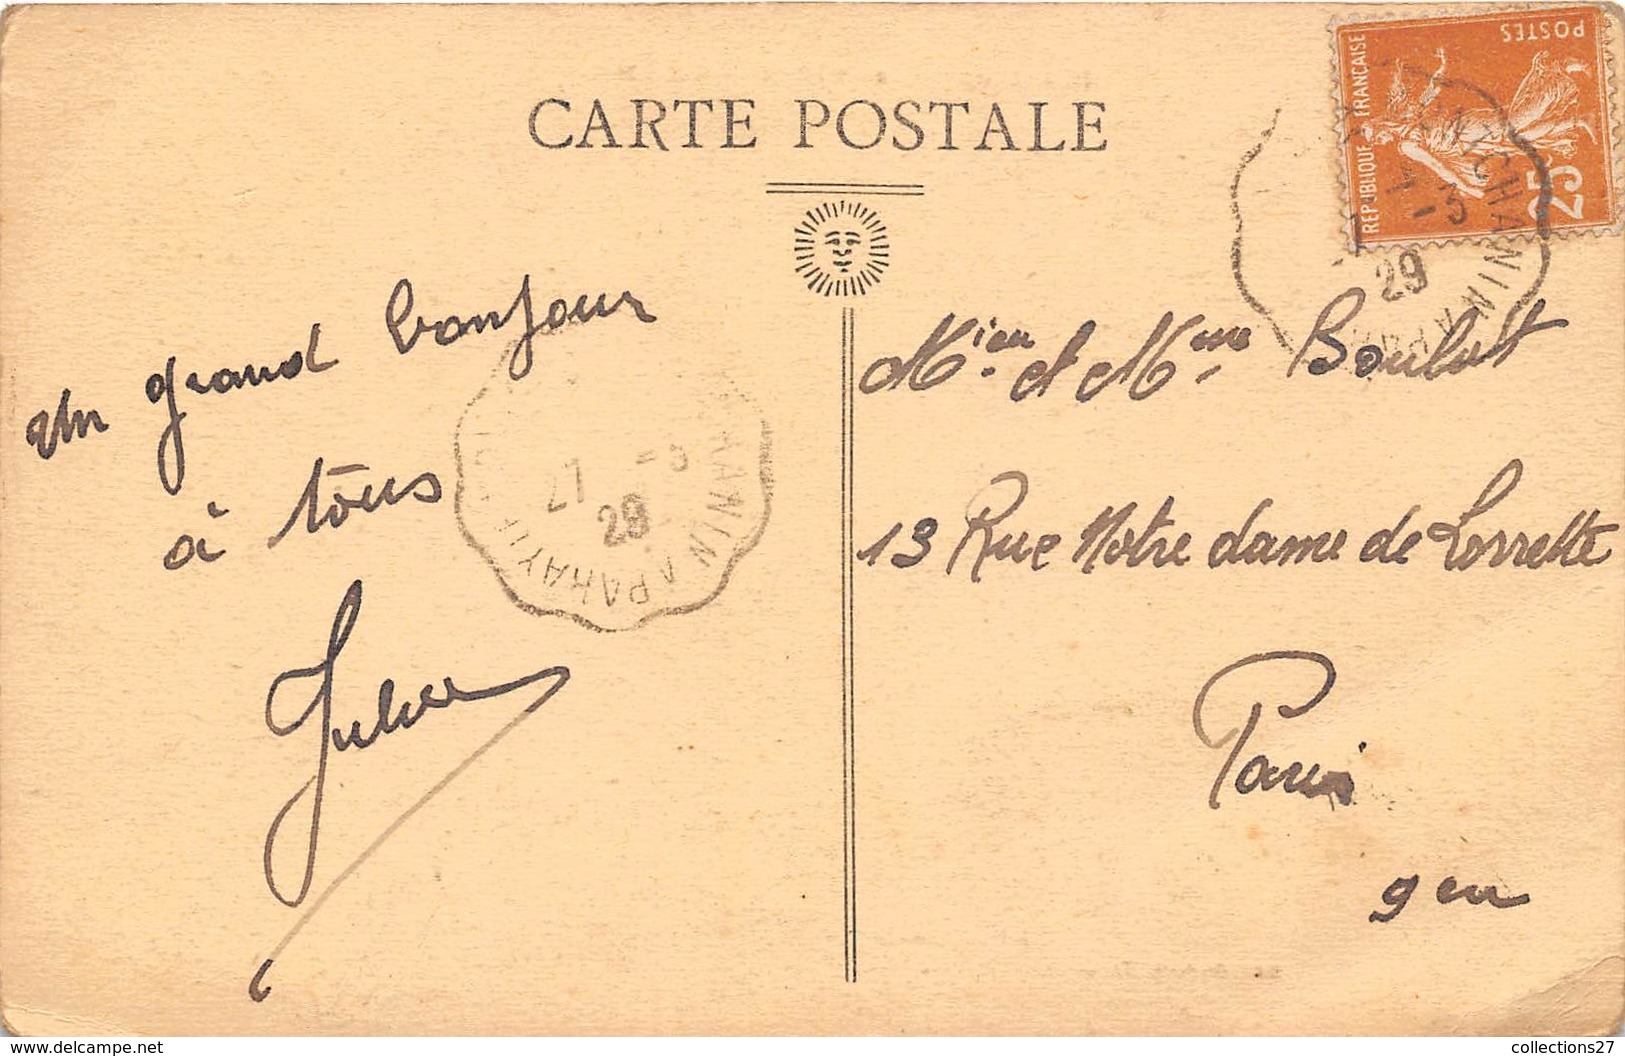 CARTE POSTALE
POSTES
REPUBLIQUE FRANÇAISE
25
-3
29
un grand bonjour
à tous
27 -3
29
Mr et Mme Boulot
13 Rue Notre dame de Lorrette
Paris
9em
www.delcampe.net
collections27